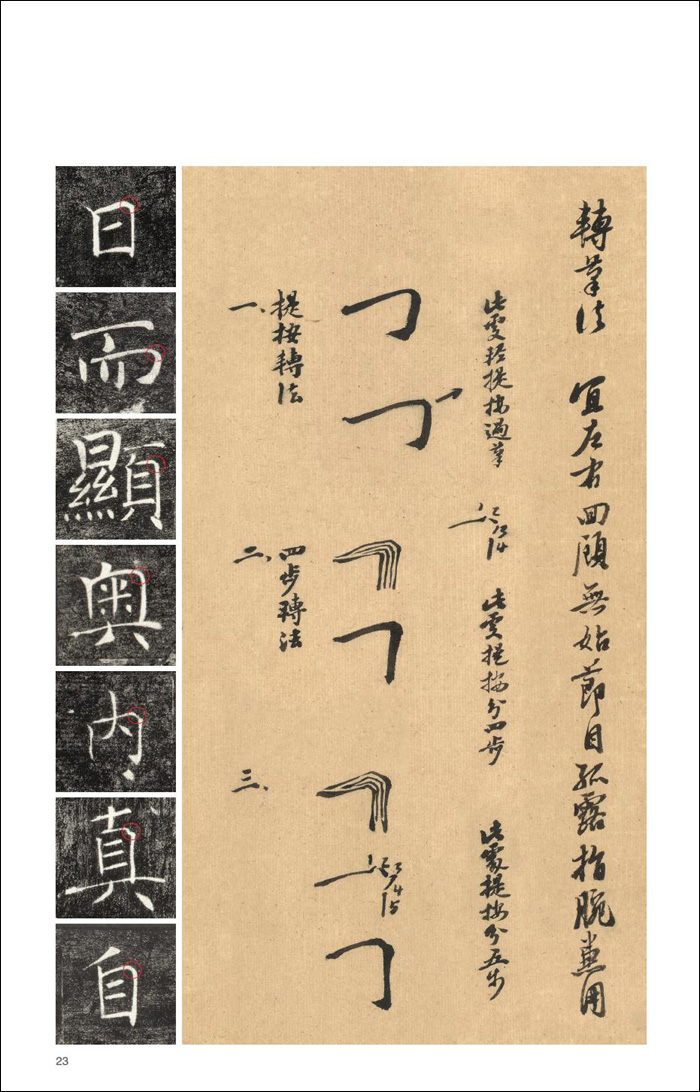 轉筆法 宜左右回顧無始節目孤露指腕用
此處提按過筆
1 2 3 4
此處提按分四步
此處提按分五步
一、提按轉法
二、四步轉法
三、
1 2 3 4 5
日
而
顯
奥
内
真
自
23